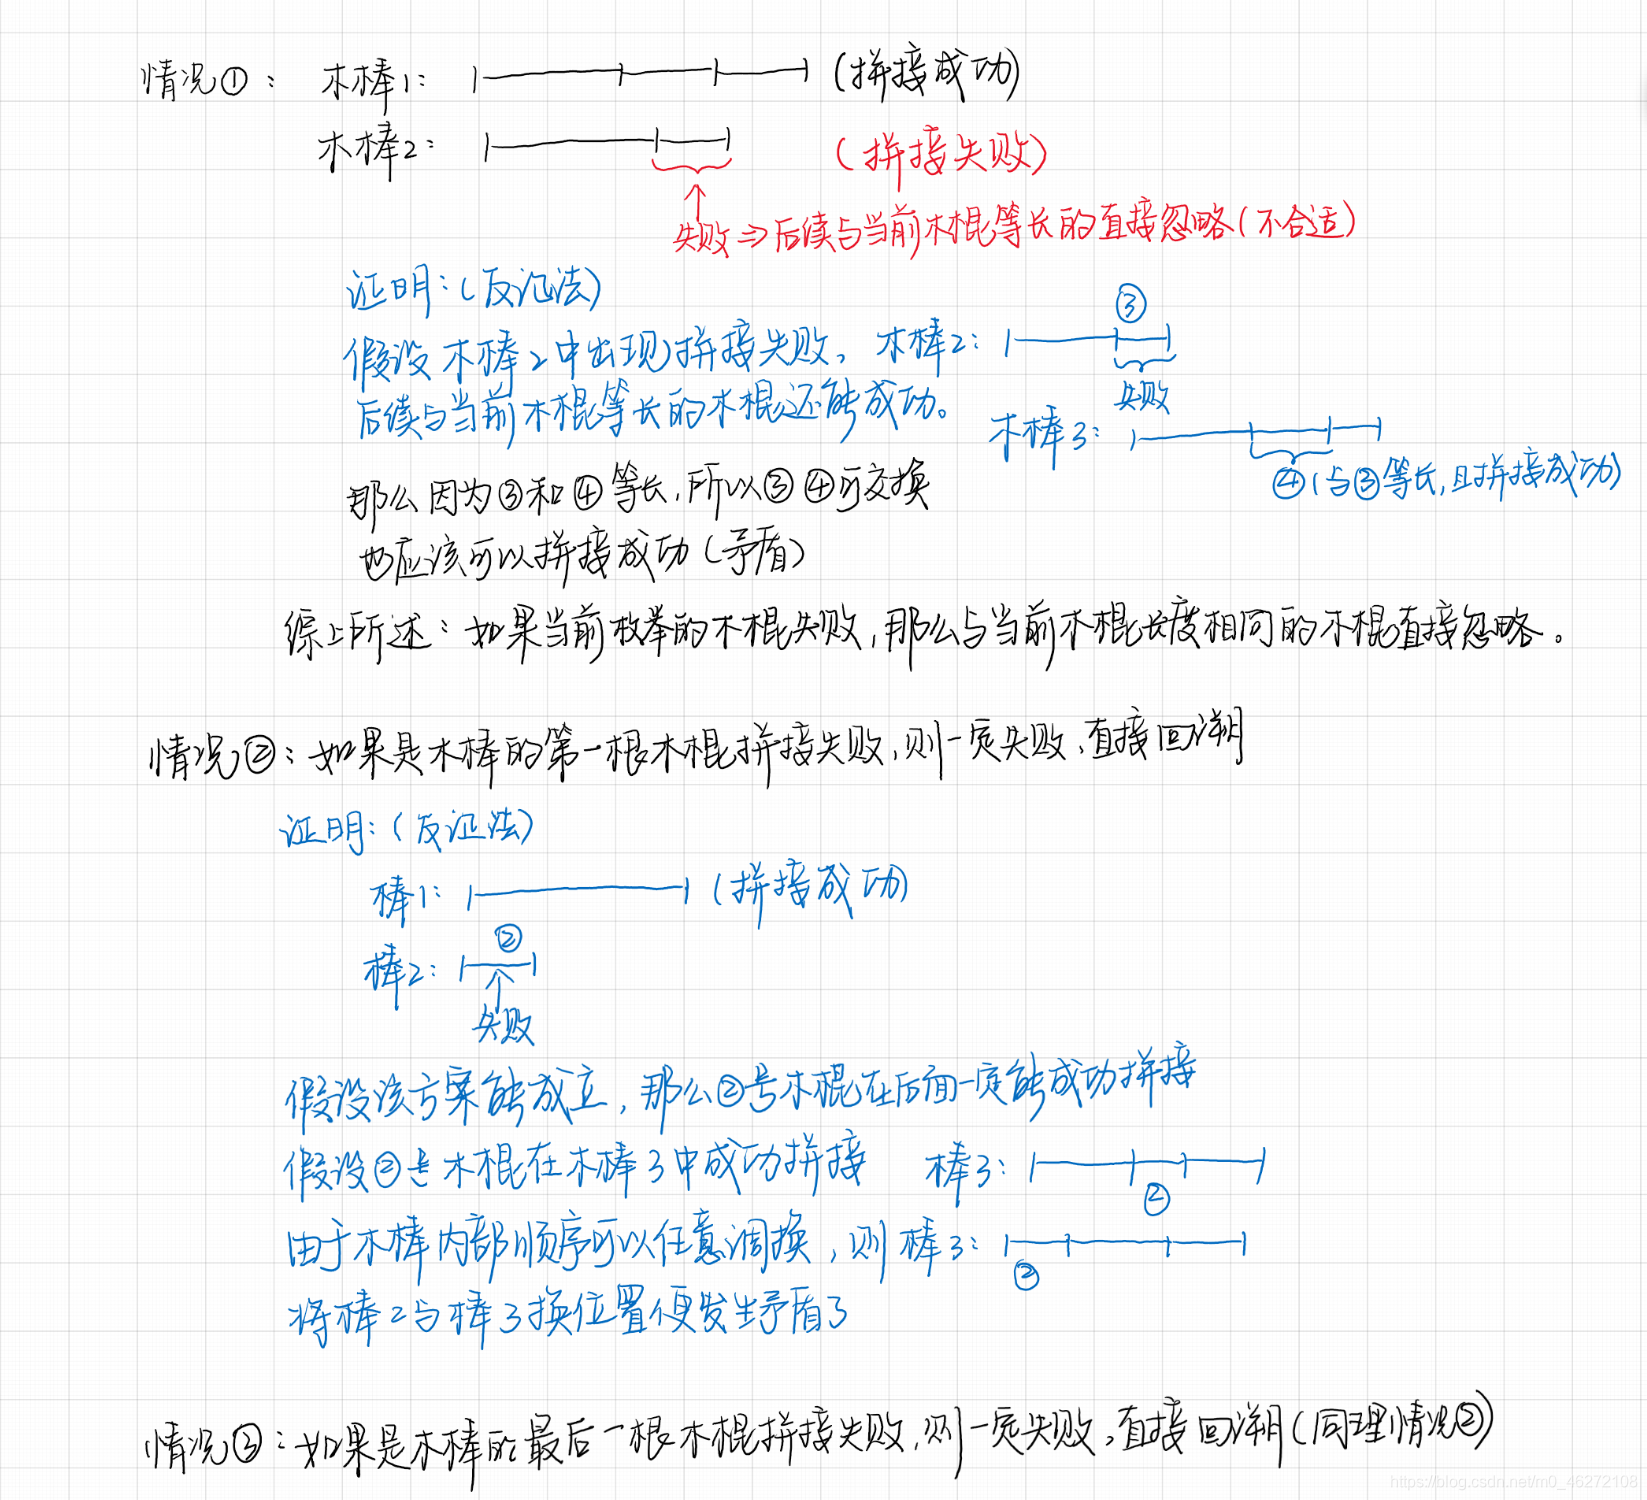 情况①： 木棒1： （拼接成功）
木棒2： （拼接失败）
失败⇒后续与当前木棍等长的直接忽略（不合适）
证明：（反证法）
③
假设木棒2中出现拼接失败， 木棒2：
失败
后续与当前木棍等长的木棍还能成功。
木棒3：
④（与③等长，且拼接成功）
那么因为③和④等长，所以③④可交换
也应该可以拼接成功（矛盾）
综上所述：如果当前枚举的木棍失败，那么与当前木棍长度相同的木棍直接忽略。
情况②：如果是木棒的第一根木棍拼接失败，则一定失败，直接回溯
证明：（反证法）
棒1： （拼接成功）
②
棒2：
失败
假设该方案能成立，那么②号木棍在后面一定能成功拼接
假设②号木棍在木棒3中成功拼接 棒3：
②
由于木棒内部顺序可以任意调换，则棒3：
②
将棒2与棒3换位置便发生矛盾了
情况③：如果是木棒的最后一根木棍拼接失败，则一定失败，直接回溯（同理情况②）
https://blog.csdn.net/m0_46272108